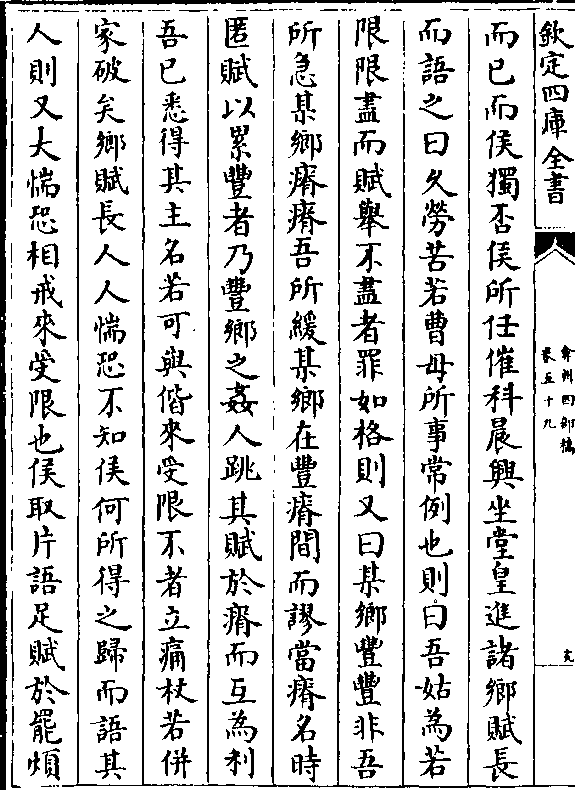 欽定四庫全書
弇州四部稿
卷五十九
而已而侯獨否侯所任催科晨興坐堂皇進諸鄉賦長
而語之曰久勞苦若曹毋所事常例也則曰吾姑為若
限限盡而賦舉不盡者罪如格則又曰某鄉豐豐非吾
所急某鄉瘠瘠吾所緩某鄉在豐瘠間而謬當瘠名時
匿賦以累豐者乃豐鄉之姦人跳其賦於瘠而互為利
吾已悉得其主名若可與偕來受限不者立痛杖若併
家破矣鄉賦長人人惴恐不知侯何所得之歸而語其
人則又大惴恐相戒來受限也侯取片語足賦於罷煩